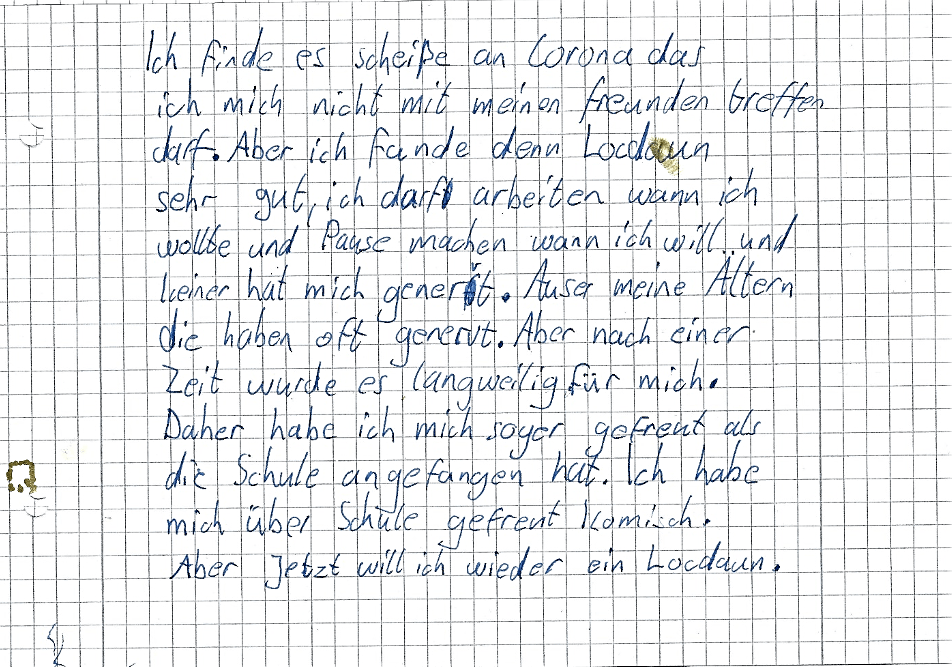 Ich finde es scheiße an Corona das
ich mich nicht mit meinen freunden treffen
darf. Aber ich fande denn Locdaun
sehr gut, ich darft arbeiten wann ich
wollte und Pause machen wann ich will und
keiner hat mich genervt. Auser meine Ältern
die haben oft genervt. Aber nach einer
Zeit wurde es langweilig für mich.
Daher habe ich mich soger gefreut als
die Schule angefangen hat. Ich habe
mich über Schule gefreut Komisch.
Aber Jetzt will ich wieder ein Locdaun.